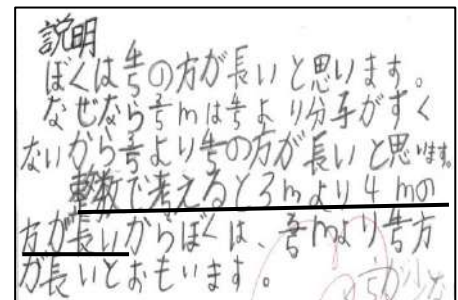 説明
ぼくは4/5の方が長いと思います。
なぜなら3/5mは4/5より分子がすく
ないから3/5より4/5の方が長いと思います。
整数で考えると3mより4mの
方が長いからぼくは、3/5mより4/5方
が長いとおもいます。